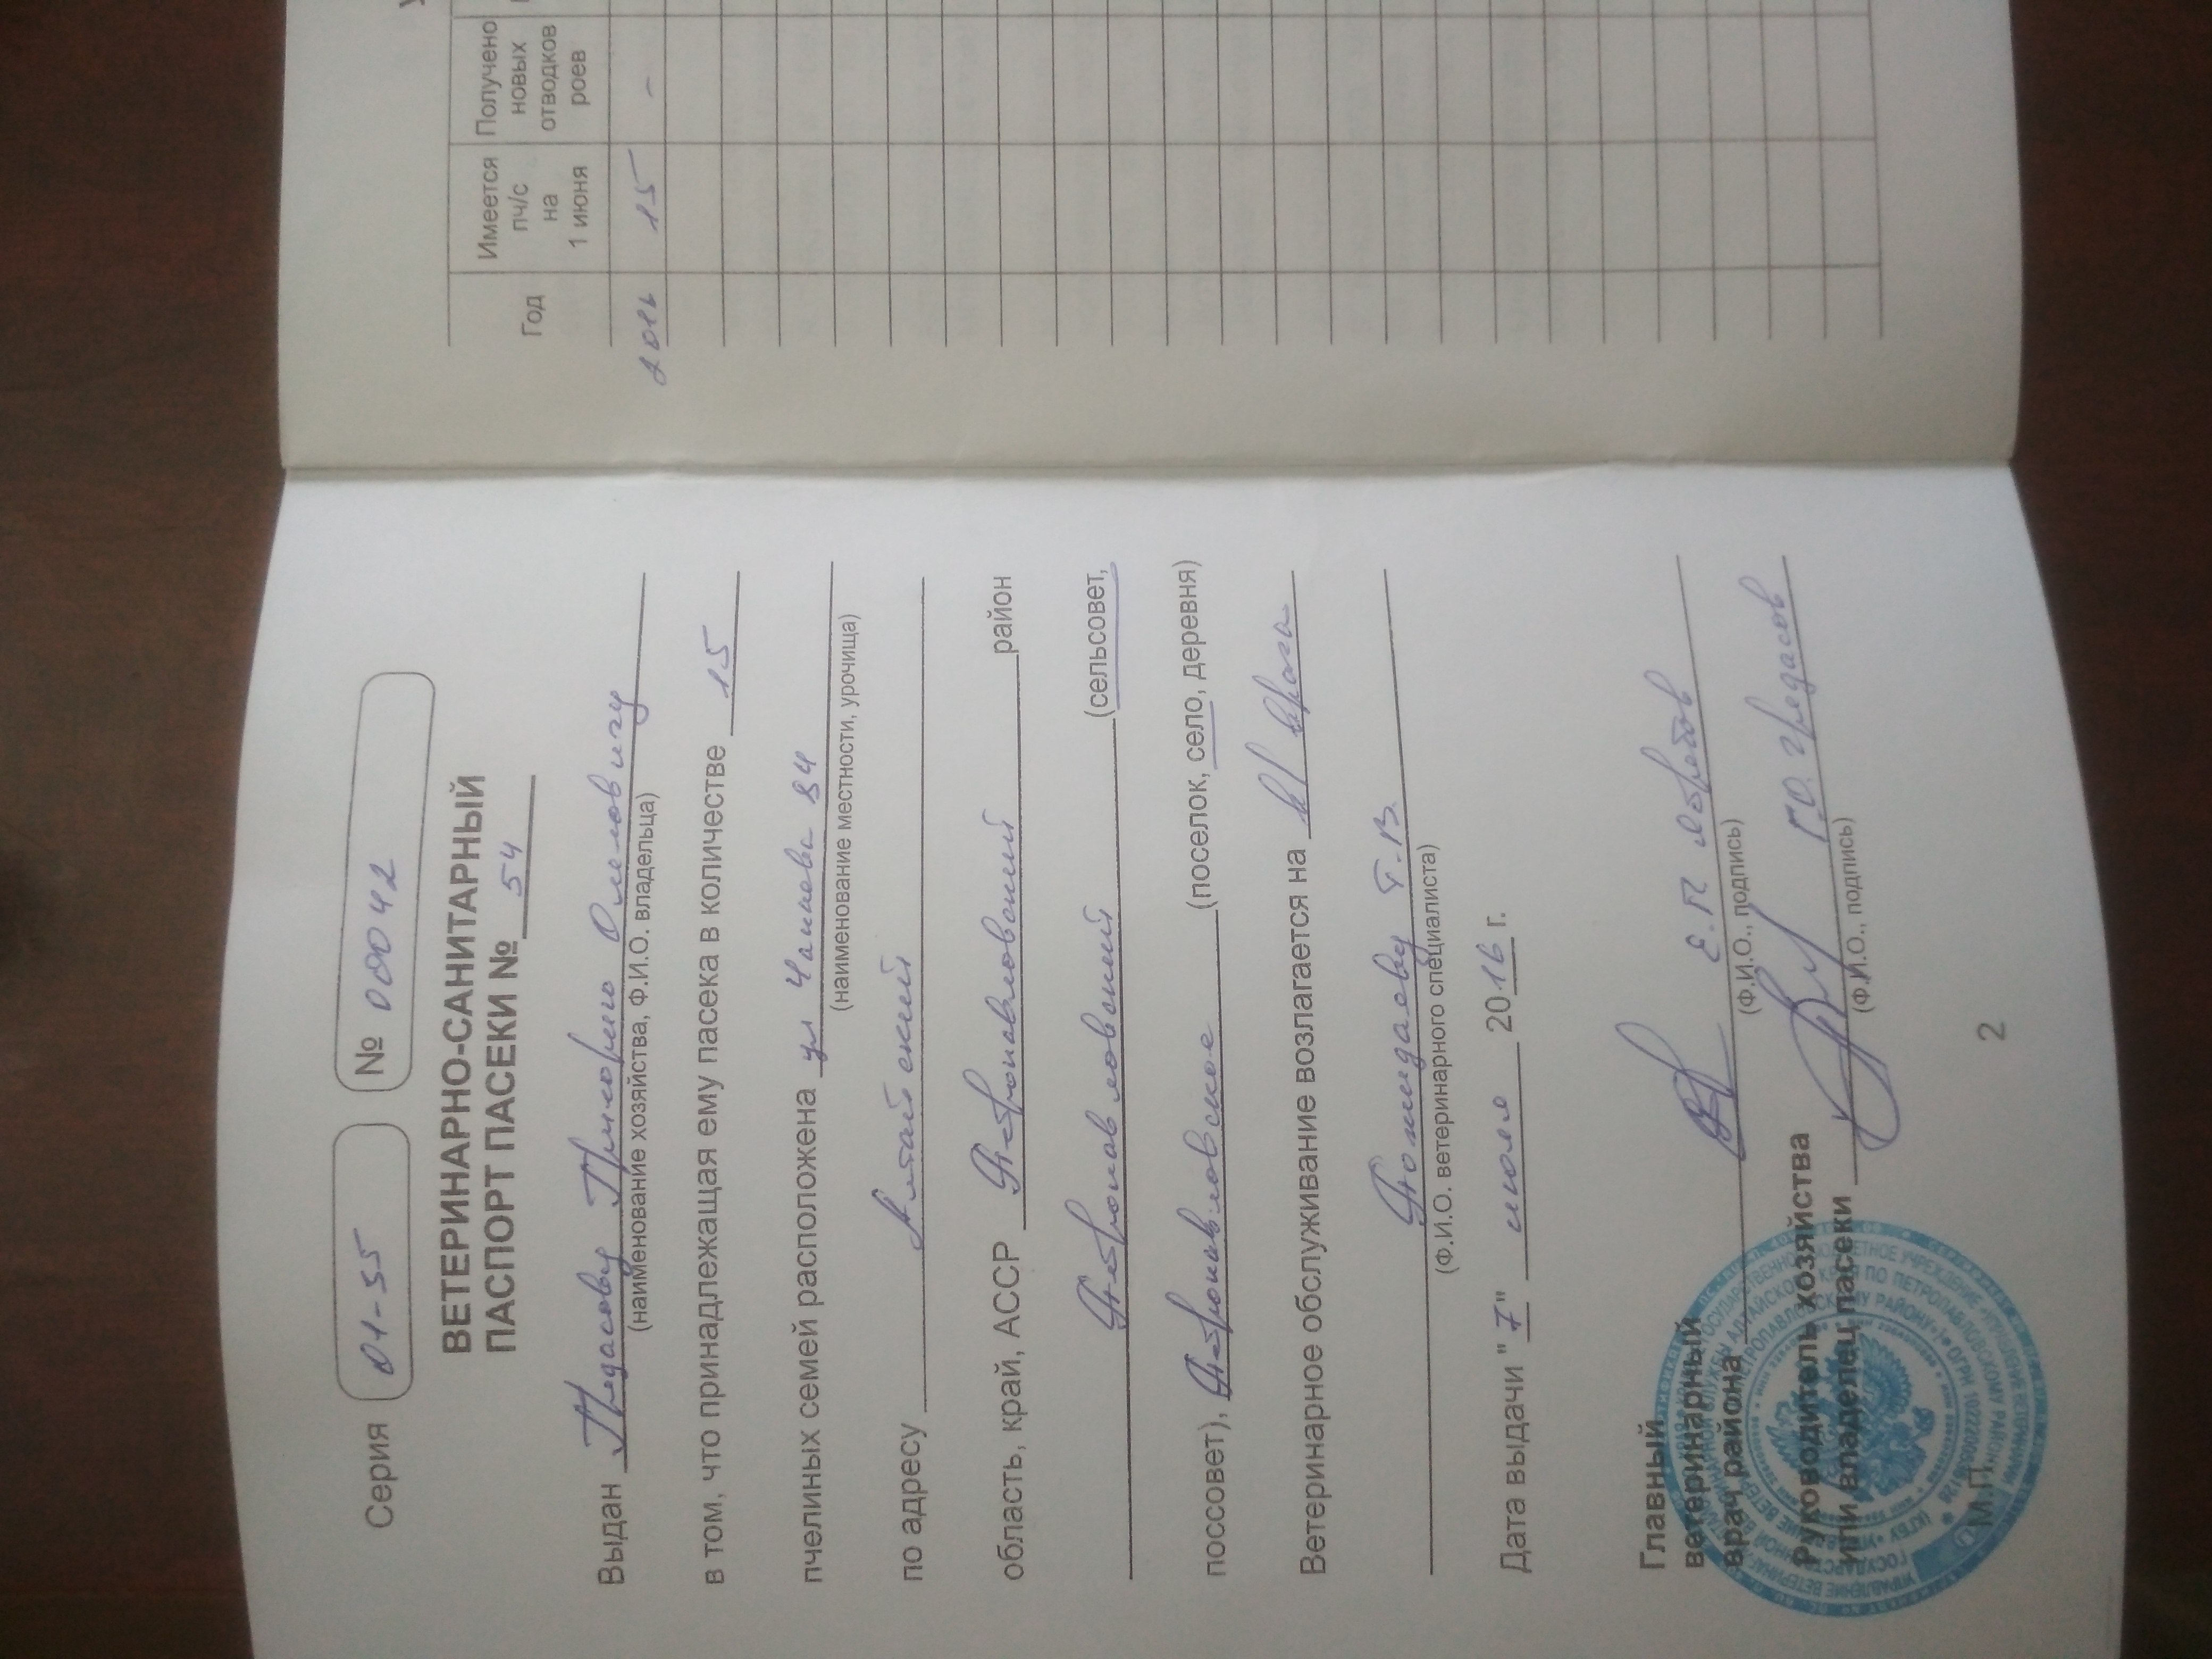 Серия 01-55 № 00042
ВЕТЕРИНАРНО-САНИТАРНЫЙ
ПАСПОРТ ПАСЕКИ № 54
Выдан Олеговичу
(наименование хозяйства, Ф.И.О. владельца)
в том, что принадлежащая ему пасека в количестве 15
пчелиных семей расположена ул 84
(наименование местности, урочища)
по адресу Алтайский
область, край, АССР Петропавловский район
Петропавловский (сельсовет,
поссовет), Петропавловское (поселок, село, деревня)
Ветеринарное обслуживание возлагается на в/врача
(Ф.И.О. ветеринарного специалиста)
Дата выдачи "7" июля 2016 г.
Главный
ветеринарный
врач района Е.П. Ястребов
(Ф.И.О., подпись)
Руководитель хозяйства
или владелец пасеки
(Ф.И.О., подпись)
М.П.
2
Год
Имеется
пч/с
на
1 июня
Получено
новых
отводков
роев
2016 15 -